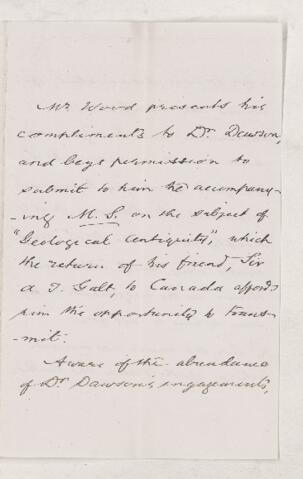 Mr Wood presents his
compliments to Dr. Dawson,
and begs permission to
submit to him the accompany-
-ing M.S. on the subject of
"Geological Antiquity", which
the return of his friend, Sir
A. T. Galt, to Canada affords
him the opportunity to trans-
-mit.
Aware of the abundance
of Dr Dawson's engagements,